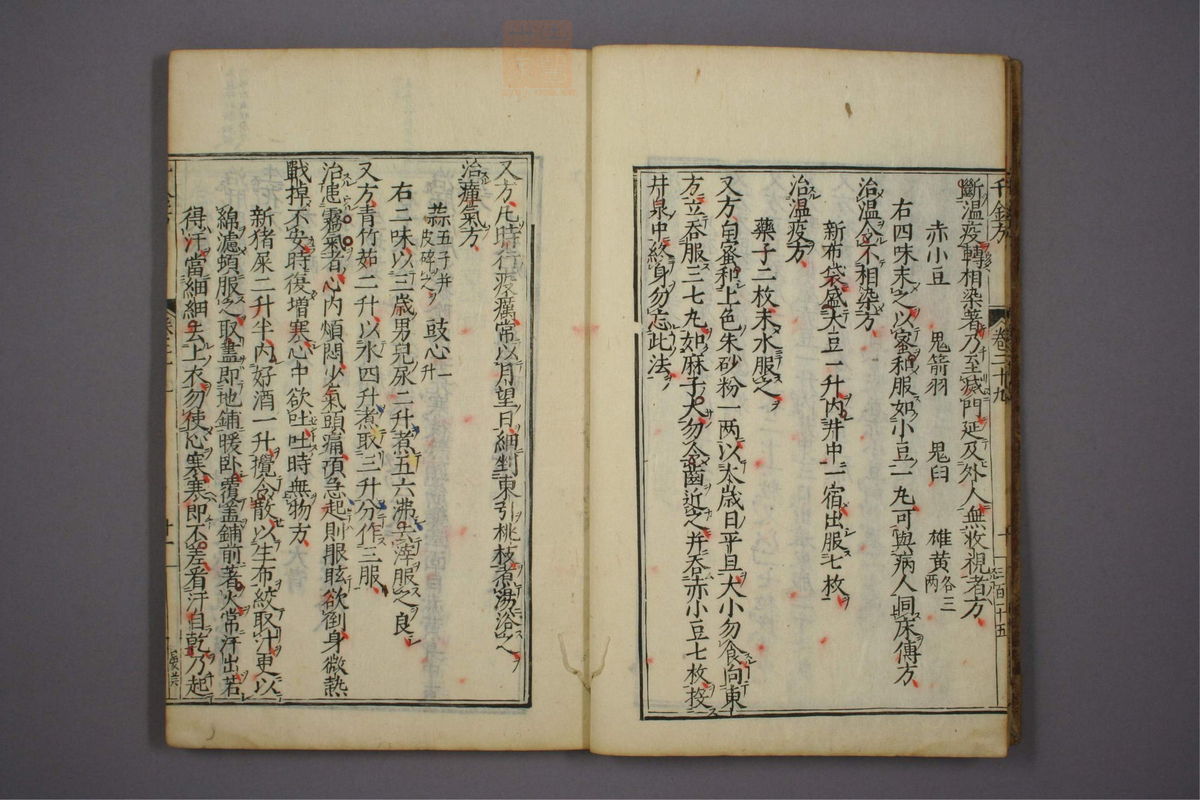 千金方 卷二十九
斷溫疫轉相染著乃至滅門延及外人無收視者方
赤小豆 鬼箭羽 鬼臼 雄黃各三兩
右四味末之以蜜和服如小豆一丸可與病人同床傅方
治溫令不相染方
新布袋盛大豆一升內井中一宿出服七枚
治溫疫方
藥子二枚末水服之
又方白蜜和上色朱砂粉一兩以太歲日平旦大小勿食向東
方立吞服三七丸如麻子大勿令齒近之幷吞赤小豆七枚投
井泉中終身勿忘此法
又方凡時行疫癘常以月望日細剉東引桃枝煮湯浴之
治瘴氣方
蒜五子幷皮碎之 豉心一升
右二味以三歲男兒尿二升煮五六沸去滓服之良
又方青竹茹二升以水四升煮取三升分作三服
治患霧氣者心內煩悶少氣頭痛項急起則眼眩欲倒身微熱
戰掉不安時復增寒心中欲吐吐時無物方
新猪屎二升半內好酒一升攪令散以生布絞取汁更以
綿濾頓服之取盡即地鋪暖臥覆蓋鋪前著火常汗出若
得汗當細細去上衣勿使心寒寒即不差看汗自乾乃起